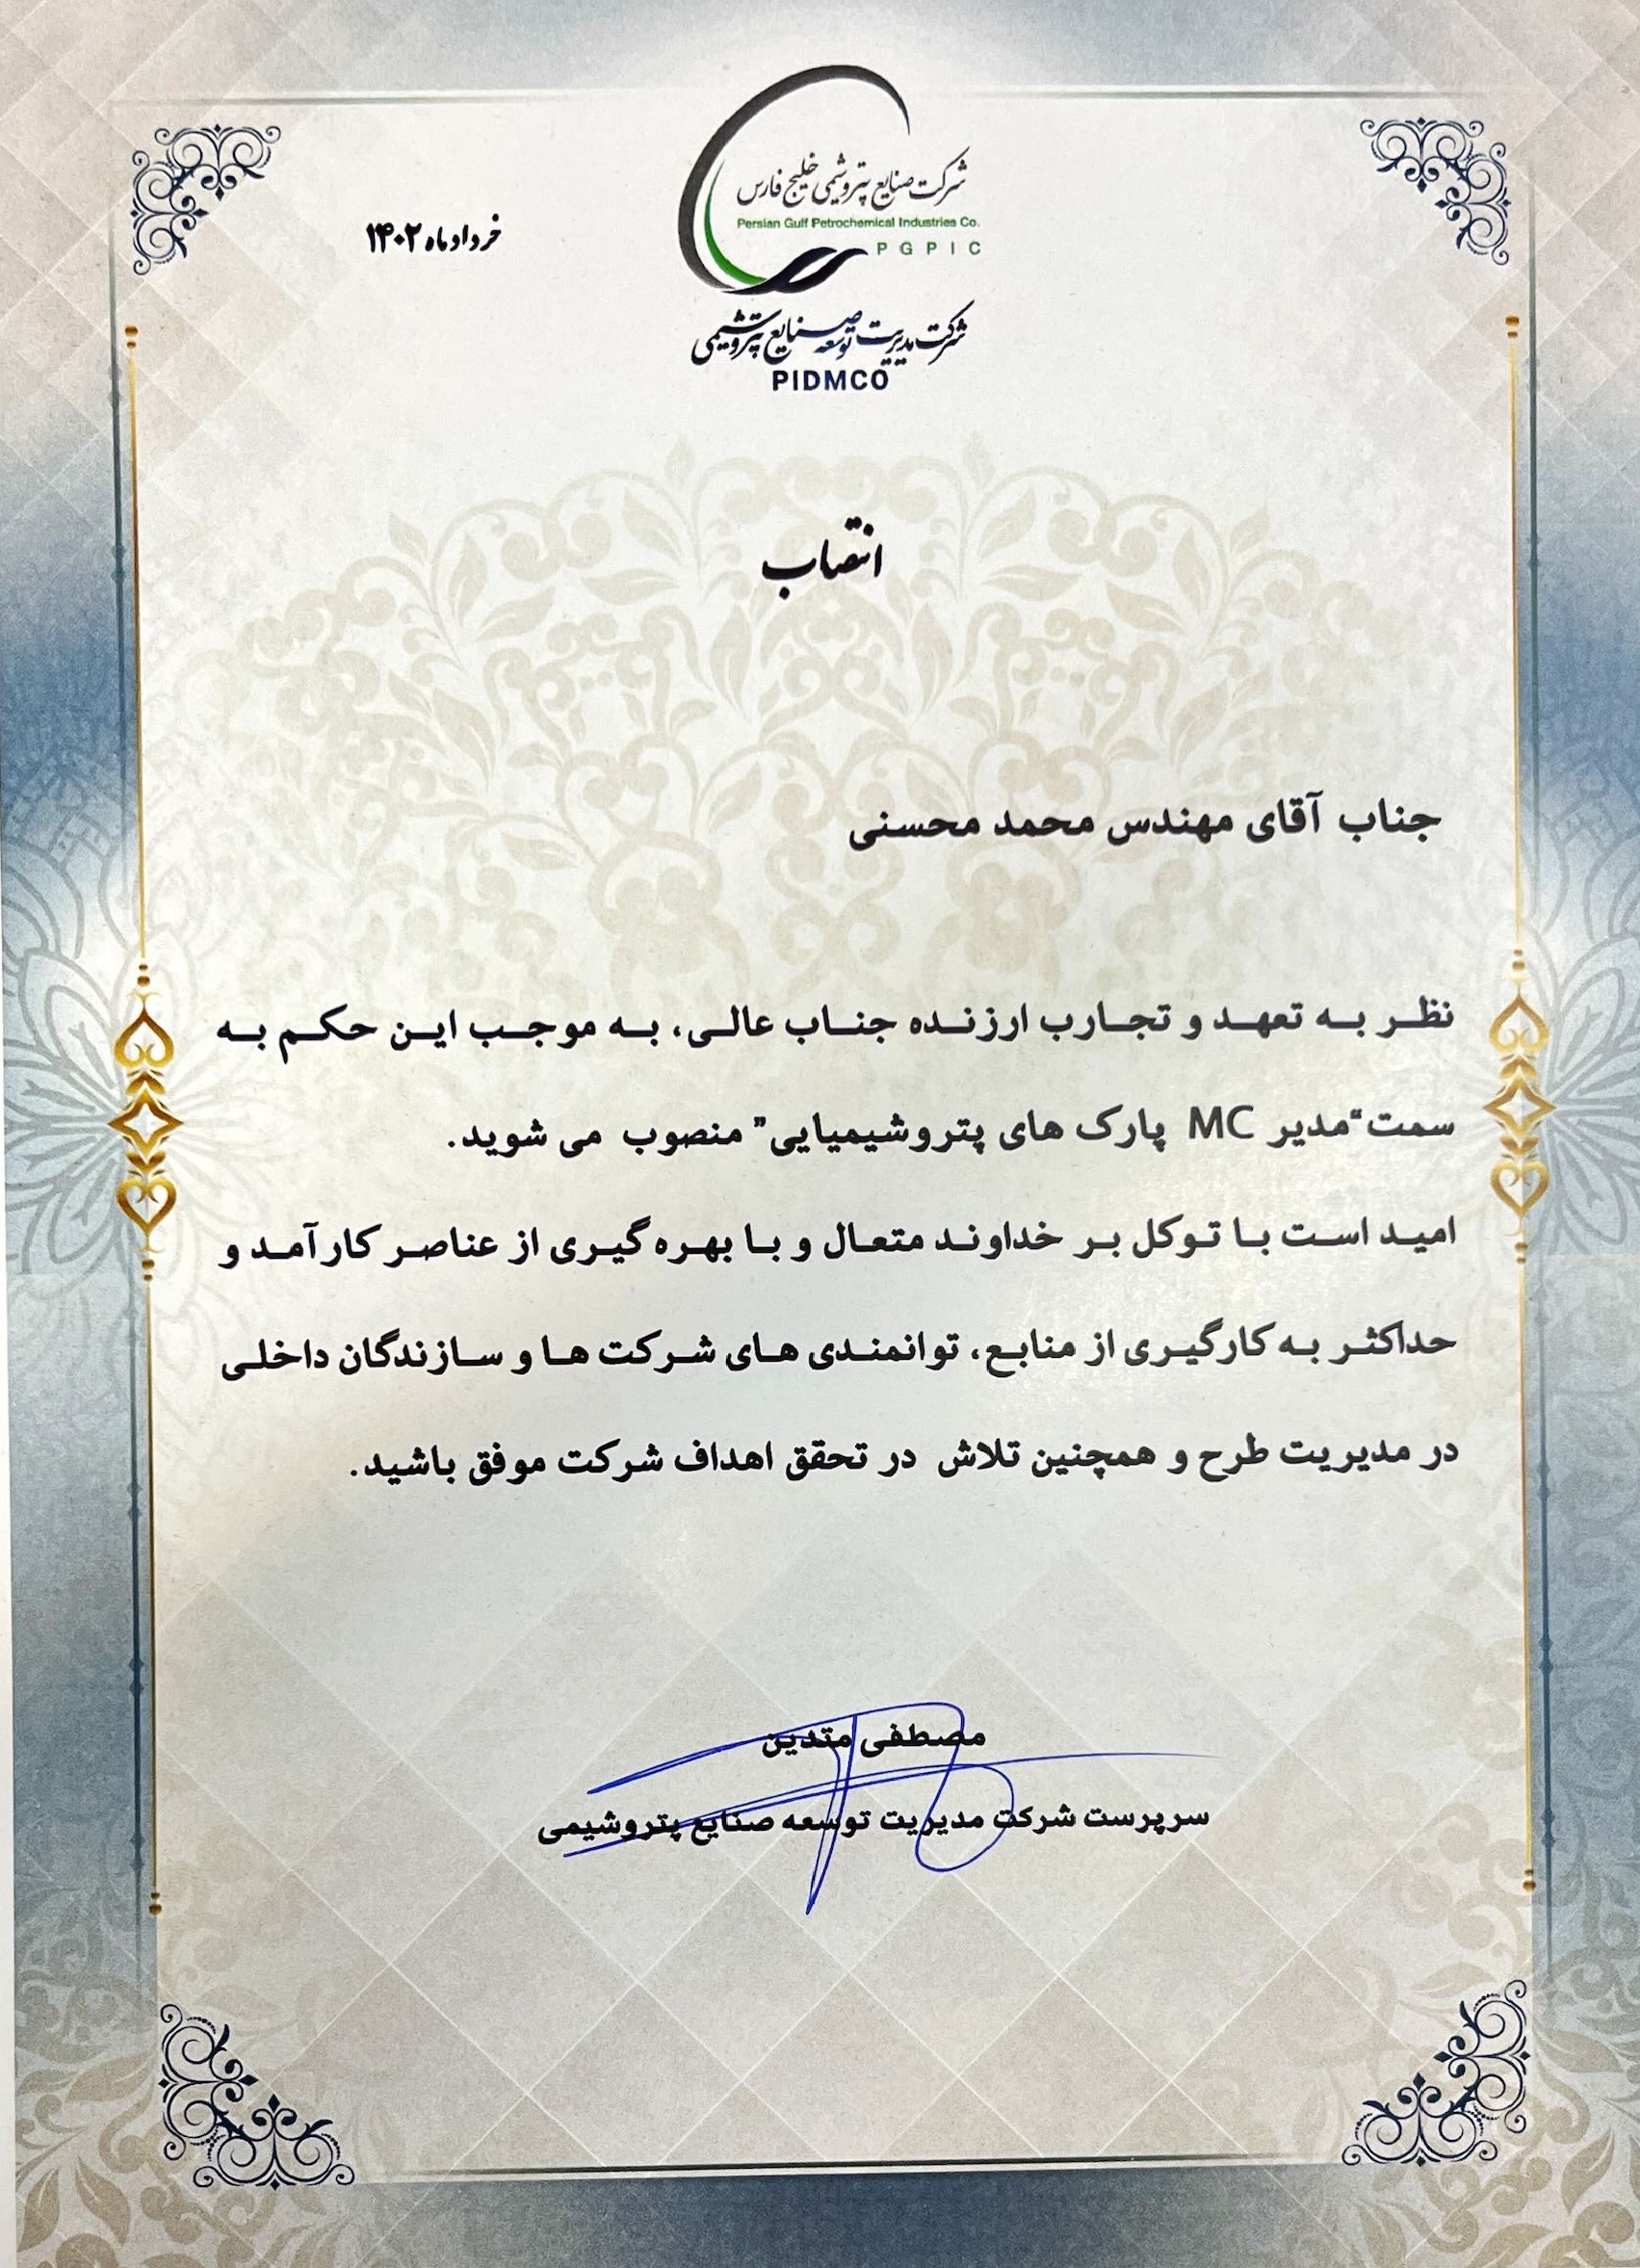 شرکت صنایع پتروشیمی خلیج فارس
Persian Gulf Petrochemical Industries Co.
PGPIC
شرکت مدیریت توسعه صنایع پتروشیمی
PIDMCO
خرداد ماه ۱۴۰۲
انتصاب
جناب آقای مهندس محمد محسنی
نظر به تعهد و تجارب ارزنده جناب عالی، به موجب این حکم به
سمت“مدیر MC پارک های پتروشیمیایی” منصوب می شوید.
امید است با توکل بر خداوند متعال و با بهره گیری از عناصر کارآمد و
حداکثر به کارگیری از منابع، توانمندی های شرکت ها و سازندگان داخلی
در مدیریت طرح و همچنین تلاش در تحقق اهداف شرکت موفق باشید.
مصطفی متدین
سرپرست شرکت مدیریت توسعه صنایع پتروشیمی